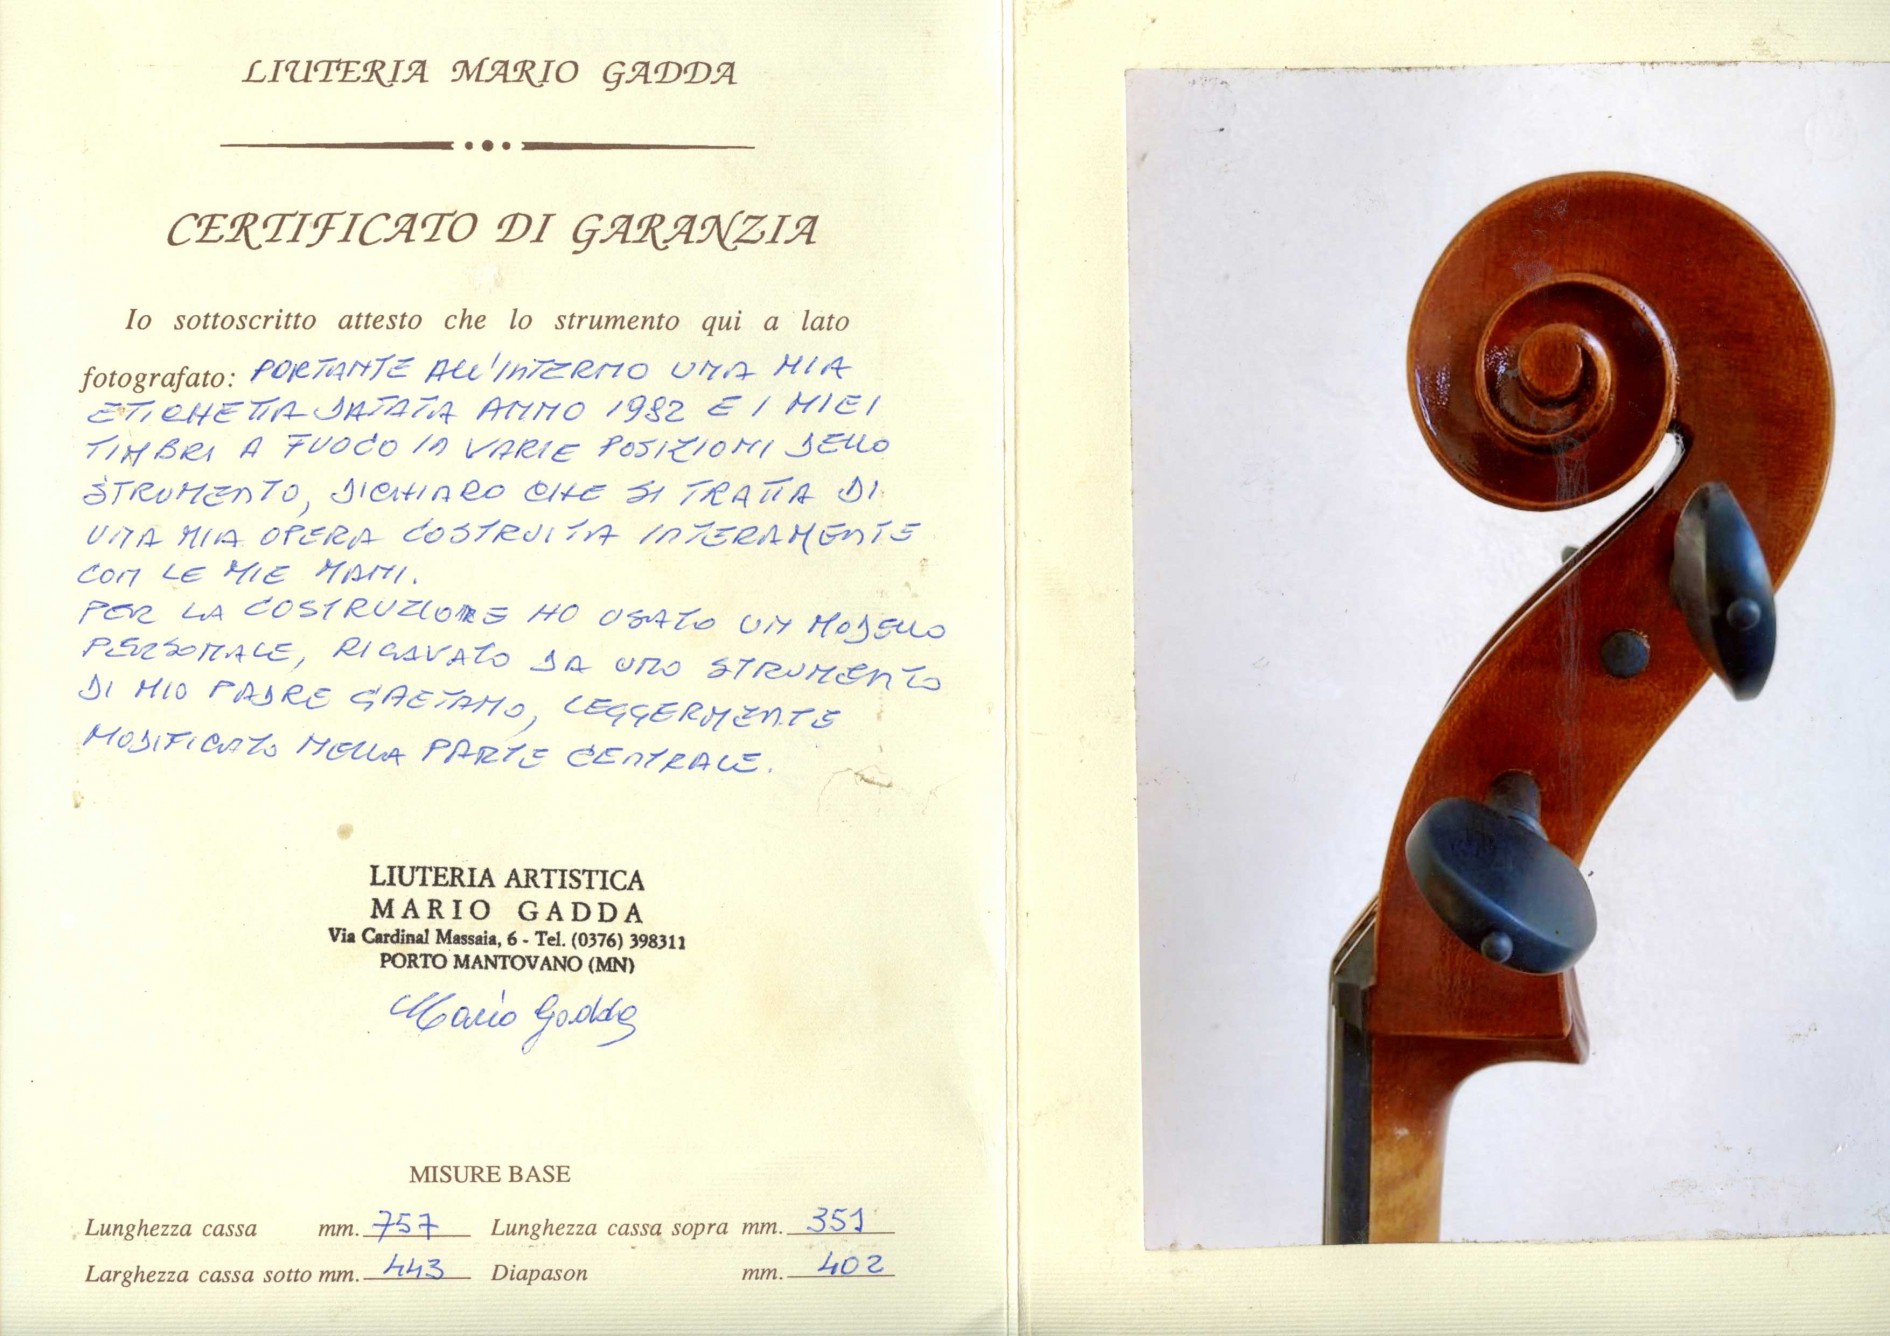 LIUTERIA MARIO GADDA
CERTIFICATO DI GARANZIA
Io sottoscritto attesto che lo strumento qui a lato
fotografato: PORTANTE ALL'INTERNO UNA MIA
ETICHETTA DATATA ANNO 1982 E I MIEI
TIMBRI A FUOCO IN VARIE POSIZIONI DELLO
STRUMENTO, DICHIARO CHE SI TRATTA DI
UNA MIA OPERA COSTRUITA INTERAMENTE
CON LE MIE MANI.
PER LA COSTRUZIONE HO USATO UN MODELLO
PERSONALE, RICAVATO DA UNO STRUMENTO
DI MIO PADRE GAETANO, LEGGERMENTE
MODIFICATO NELLA PARTE CENTRALE.
LIUTERIA ARTISTICA
MARIO GADDA
Via Cardinal Massaia, 6 - Tel. (0376) 398311
PORTO MANTOVANO (MN)
Mario Gadda
MISURE BASE
Lunghezza cassa mm. 757 Lunghezza cassa sopra mm. 351
Larghezza cassa sotto mm. 443 Diapason mm. 402